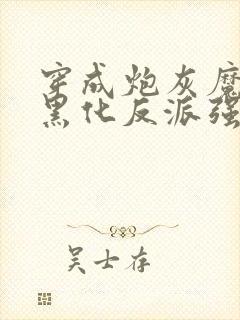 穿成炮灰魔
黑化反派强
吴士存